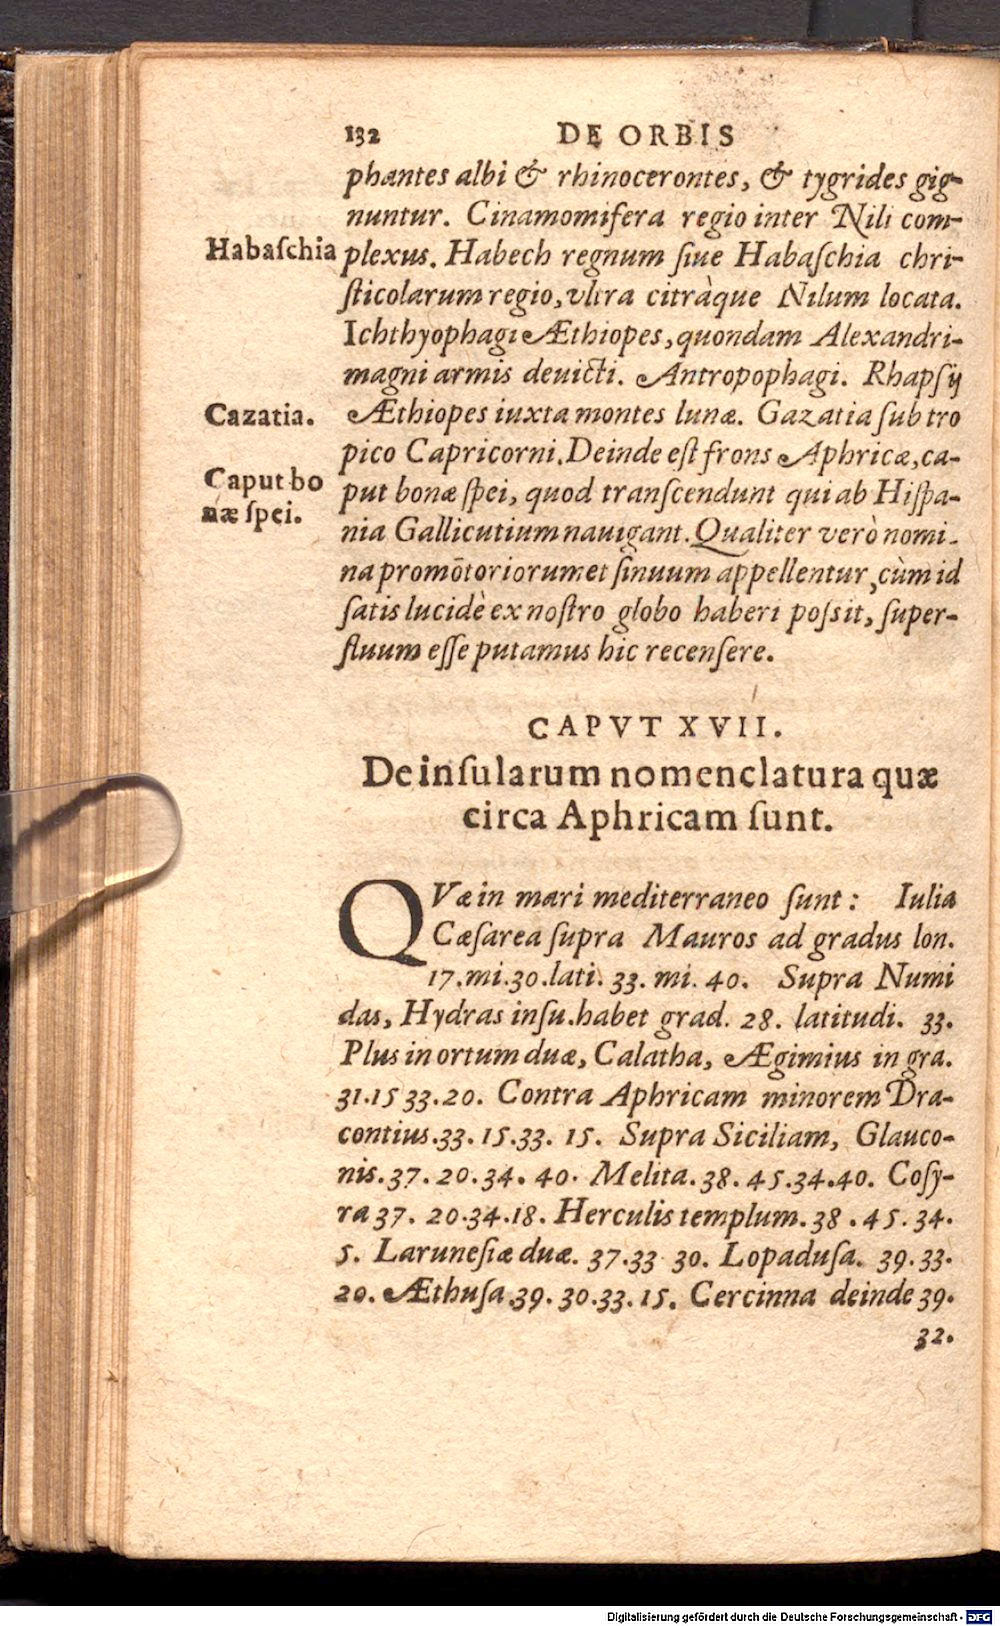 132 DE ORBIS
phantes albi & rhinocerontes, & tygrides gig-
nuntur. Cinamomifera regio inter Nili com-
Habaſchia
plexus. Habech regnum ſiue Habaſchia chri-
ſticolarum regio, vltra citràque Nilum locata.
Ichthyophagi Æthiopes, quondam Alexandri-
magni armis deuicti. Antropophagi. Rhapſij
Cazatia.
Æthiopes iuxta montes lunæ. Gazatia ſub tro
pico Capricorni. Deinde eſt frons Aphricæ, ca-
Caput bo
næ ſpei.
put bonæ ſpei, quod tranſcendunt qui ab Hiſpa-
nia Gallicutium nauigant. Qualiter verò nomi-
na promōtoriorum et ſinuum appellentur, cùm id
ſatis lucidè ex noſtro globo haberi poſsit, ſuper-
fluum eſſe putamus hic recenſere.
CAPVT XVII.
De inſularum nomenclatura quæ
circa Aphricam ſunt.
QVæ in mari mediterraneo ſunt: Iulia
Cæſarea ſupra Mauros ad gradus lon.
17. mi. 30. lati. 33. mi. 40. Supra Numi
das, Hydras inſu. habet grad. 28. latitudi. 33.
Plus in ortum duæ, Calatha, Ægimius in gra.
31. 15 33. 20. Contra Aphricam minorem Dra-
contius. 33. 15. 33. 15. Supra Siciliam, Glauco-
nis. 37. 20. 34. 40. Melita. 38. 45. 34. 40. Coſy-
ra 37. 20. 34. 18. Herculis templum. 38. 45. 34.
5. Laruneſiæ duæ. 37. 33 30. Lopaduſa. 39. 33.
20. Æthuſa. 39. 30. 33. 15. Cercinna deinde 39.
32.
Digitalisierung gefördert durch die Deutsche Forschungsgemeinschaft - DFG